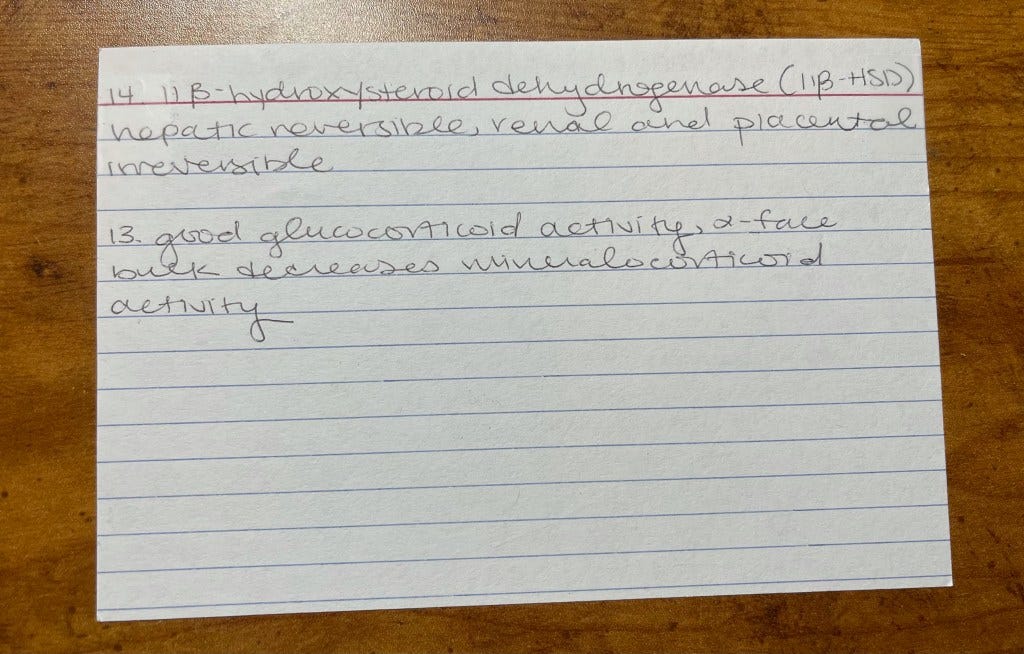 14. 11β-hydroxysteroid dehydrogenase (11β-HSD)
hepatic reversible, renal and placental
irreversible
13. good glucocorticoid activity, α-face
bulk decreases mineralocorticoid
activity